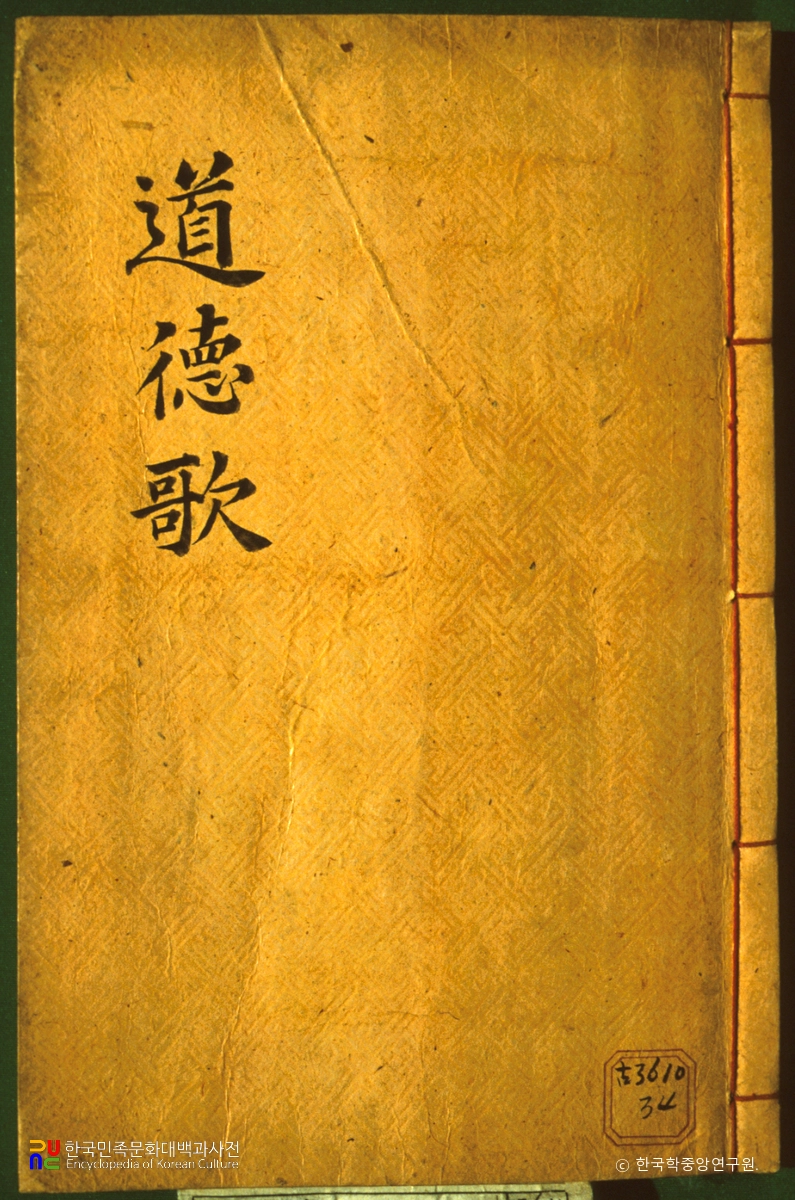 道德歌
古3610
34
한국민족문화대백과사전
Encyclopedia of Korean Culture
© 한국학중앙연구원.